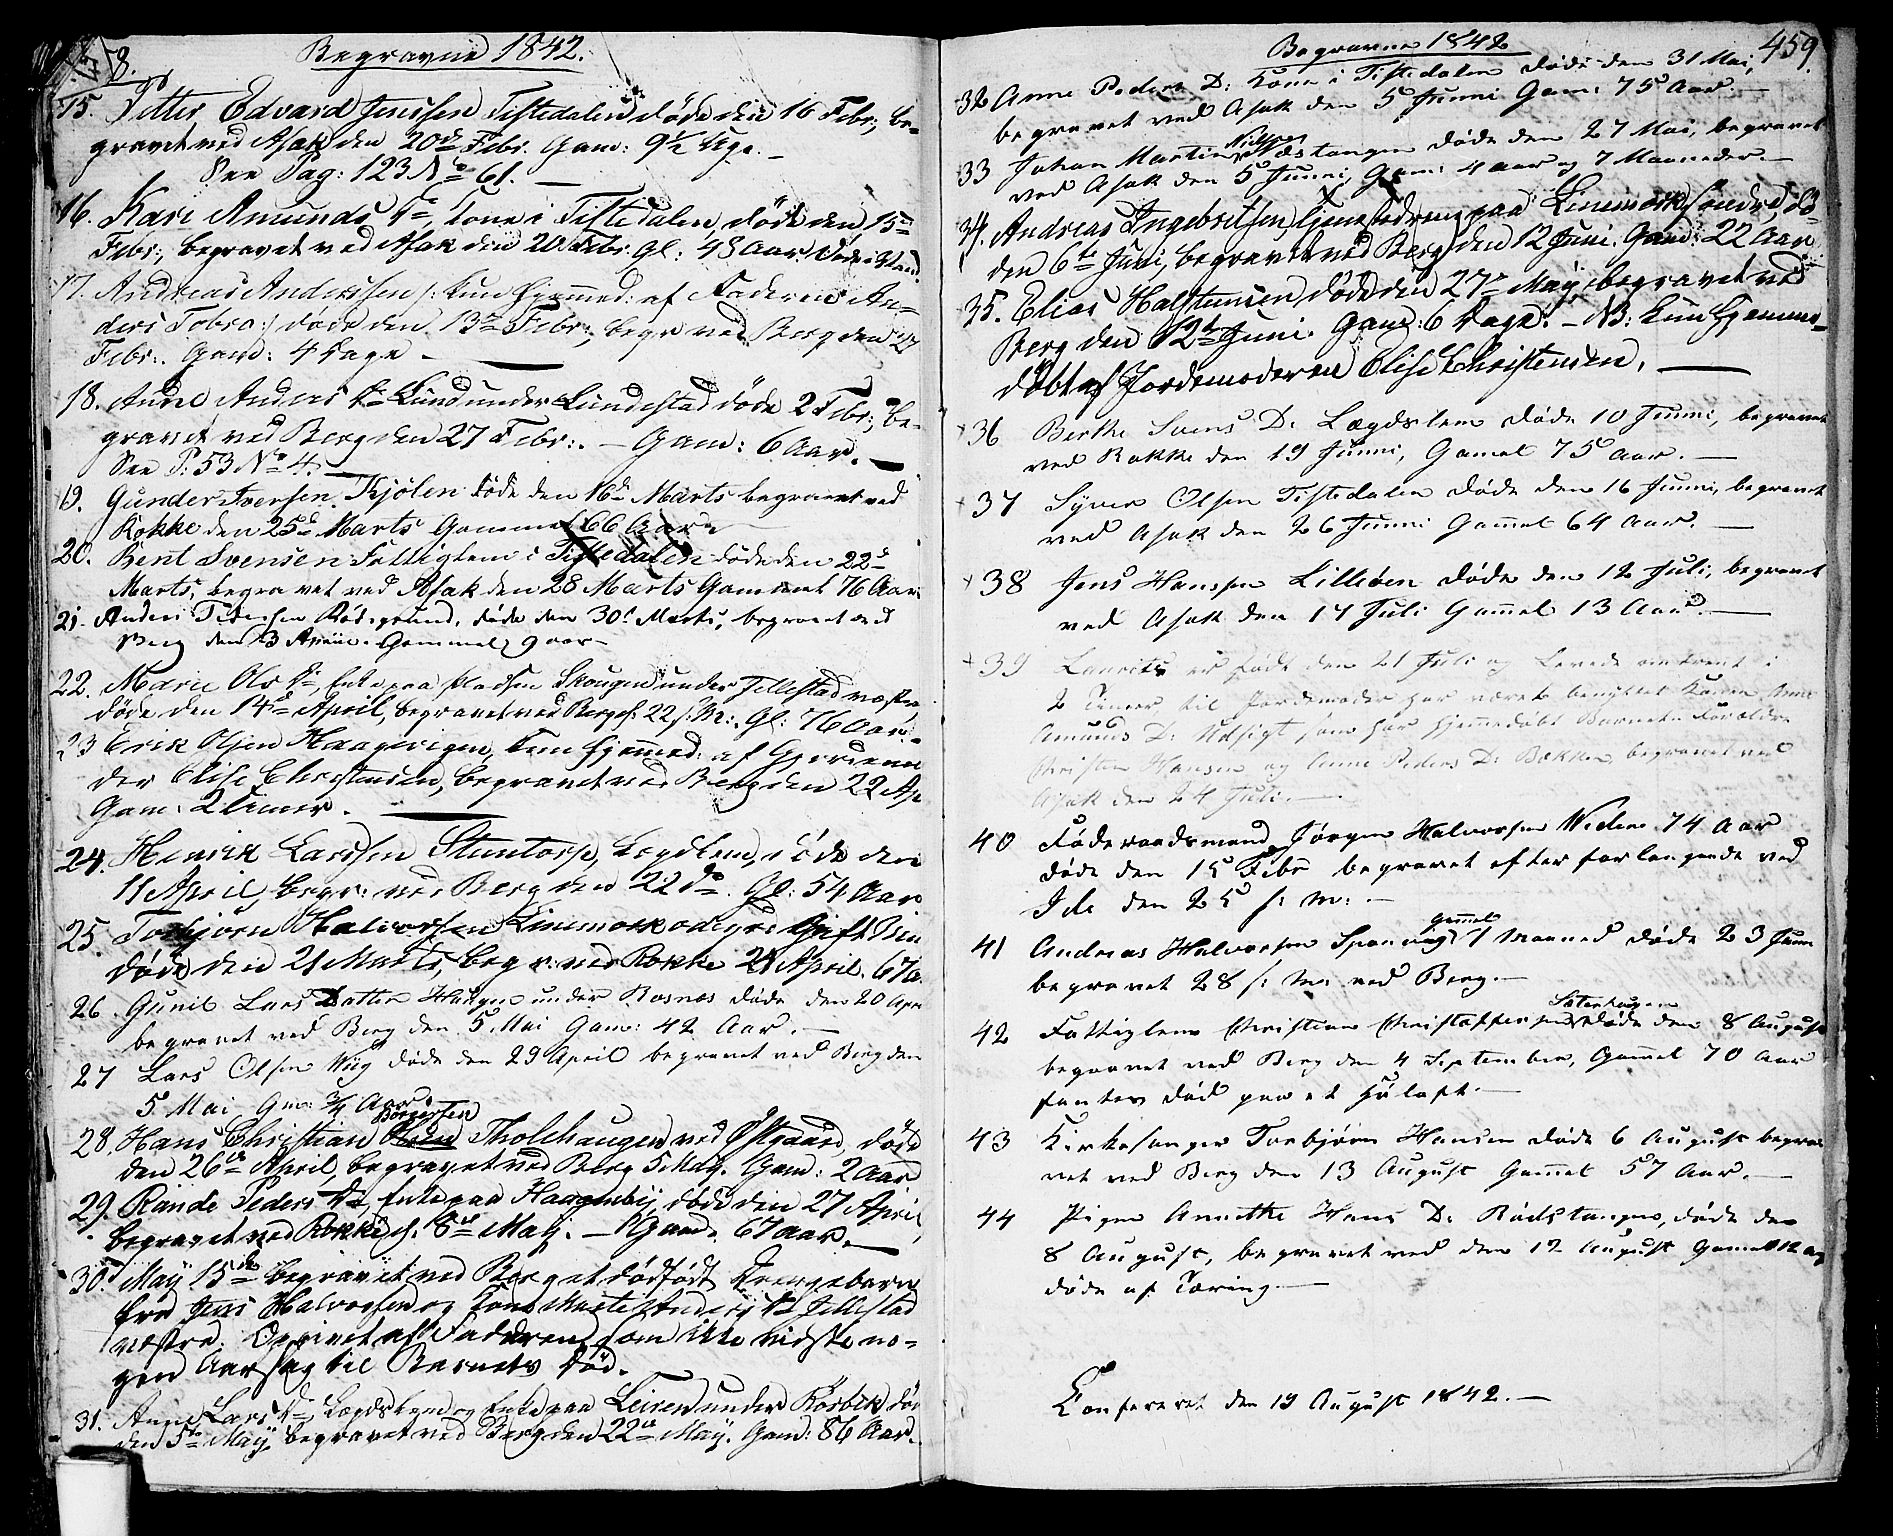 458.
Begravne 1842.
15. Petter Edvard Jenssen Tistedalen døde den 16 Febr:, be-
gravet ved Asak den 20de Febr. Gam: 9½ Uge. _
See Pag: 123 No 61. _
16. Kari Amunds Dr Kone i Tistedalen, døde den 15de
Febr:, begravet ved Asak den 20 Febr. Gl: 48 Aar.
17. Andreas Anderssen /: kun hjemmed: af Faderen An-
ders Tobro :/ døde den 13de Febr:, begr. ved Berg den 27
Febr:. Gam: 4 Dage _
18. Anne Anders Dr Lund under Lundestad døde 2 Febr:, be-
gravet ved Berg den 27 Febr:. _ Gam: 6 Aar. _
See P: 53 No 4. _
19. Gunder Iversen Kjølen døde den 16de Marts begravet ved
Rokke den 25de Marts Gammel 66 Aar
20. Bent Svensen Fattiglem i Tistedalen døde den 22de
Marts, begravet ved Asak den 28 Marts Gammel 76 Aar
21. Anders Rødsgrund, døde den 30te Marts, begravet ved
Berg den 3 April Gammel 9 aar _
22. Marie Ols Dr, Enke paa Pladsen Skougen under Jellestad væstre,
døde den 14de April, begravet ved Berg d. 22 s: M:, Gl: 76 Aar. _
23 Erik Olsen Haagevigen, kun hjemmed: af Gjordemo-
der Elise Christensen, begravet ved Berg den 22 Ap
Gam: 2 Timer. _
24. Henrik Larssen Stuntorp, Lægdlem, døde den
11 April, begr: ved Berg den 22de. Gl: 54 Aar
25. Torbjørn Halvorssen Linemork Gift
døde den 21 Marts, begr. ved Rokke 24 April. 67 a.
26. Gunil Lars Datter Haugen under Rosnæs døde den 20 Apr
begravet ved Berg den 5 Mai Gam: 42 Aar. _
27 Lars Olsen Wiig døde den 29 April begravet ved Berg den
5 Mai Gm: ¾ Aar.
28. Hans Christian Børgersen Tholehaugen ved Østgaard, døde
den 26de April, begravet ved Berg 5 May. Gam: 2 Aar
29. Rande Peders Dr, Enke paa Haagenby, døde den 27 April,
begravet ved Rokke d. 8de May. _ Gam. 67 aar. _
30. May 15de begravet ved Berg et dødfødt Drengebarn
fra Jens Halvorssen og Kone Marte Anders Dr Jellestad
væstre. Opgivet af Faderen, som ikke vidste no-
gen Aarsag til Barnets Død.
31. Anne Lars Dr, Lægdslem og Enke paa Leiren under Rørbek, døde
den 5te May, begravet ved Berg den 22de May. Gam: 86 Aar.
459.
Begravne 1842
32 Anne Peders D: Kone i Tistedalen døde den 31 Mai,
begravet ved Asak den 5 Junni Gam: 75 Aar _
33 Johan Martin Næstangen døde den 27 Mai, begravet
ved Asak den 5 Junni, Gam: 4 aar og 7 Maaneder. _
34. Andreas Ingebretsen, Tjenestedreng paa Linemork søndre, dø-
den 6te Juni, begravet ved Berg den 12 Juni. Gam: 22 Aar
35. Elias Halstensen, døde den 27de May, begravet ved
Berg den 12te Juni. Gam: 6 Dage. _ NB: kun hjemme-
døbt af Jordemoderen Elise Christensen. _
36 Berthe Svens D: Lægdslem døde 10 Junni, begravet
ved Rokke den 19 Junni, Gamel 75 Aar. _
37 Syver Olsen Tistedalen døde den 16 Junni, begravet
ved Asak den 26 Junni Gammel 64 Aar. _
38 Jens Hanssen Lilleøen døde den 12 Juli, begravet
ved Asak den 17 Juli Gammel 13 Aar. _
39 Laurits er født den 21 Juli og Levede omtrent i
2 Timer, til Jordemoder har været benyttet Konen Anne
Amunds D: Udsigt som har hjemmedøbt Barnet. Forældre
Christen Hansen og Anne Peders D: Bækken, begravet ved
Asak den 24 Juli. _
40 Føderaadsmand Jørgen Halvorsen Weden 74 Aar
døde den 15 Febr begravet efter forlangende ved
Ide den 25 s: m: _
41 Andreas Halvorsen Sponvig gammel 1 Maaned døde 23 Juni
begravet 28 s: m: ved Berg. _
42 Fattiglem Christian Christophersen døde den 8 August
begravet ved Berg den 4 September, Gammel 70 Aar
funten død paa et Høloft. _
43 Kirkesanger Torbjørn Hansen døde 6 August begra-
vet ved Berg den 13 August Gammel 57 Aar. _
44 Pigen Annethe Hans D: Rødstangen, døde den
8 August, begravet ved den 12 August Gamel
døde af Tæring. _
Confereret den 19 August 1842. _